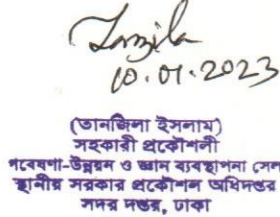 Tanzila
10.01.2023
(তানজিলা ইসলাম)
সহকারী প্রকৌশলী
গবেষণা-উন্নয়ন ও জ্ঞান ব্যবস্থাপনা (সেল
স্থানীয় সরকার প্রকৌশল অধিদপ্তর
সদর দপ্তর, ঢাকা